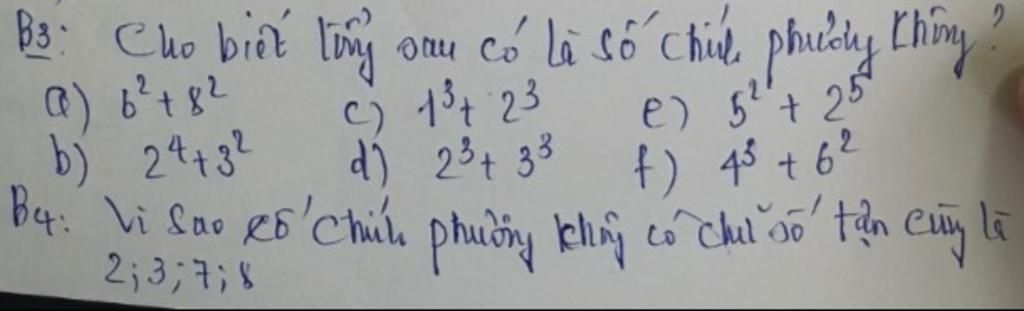 B3: Cho biết tổng sau có là số chính phương không?
a) 6² + 8² c) 1³ + 2³ e) 5² + 2⁵
b) 2⁴ + 3² d) 2³ + 3³ f) 4³ + 6²
B4: Vì sao số chính phương không có chữ số tận cùng là
2; 3; 7; 8